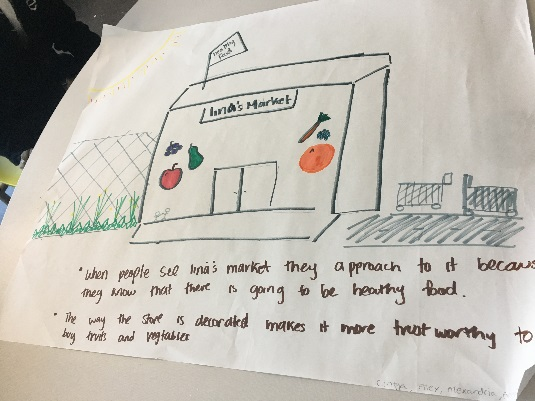 healthy
food
lina's Market
• When people see lina's market they approach to it becaus
they know that there is going to be healthy food.
• The way the store is decorated makes it more trustworthy to
buy fruits and vegtables